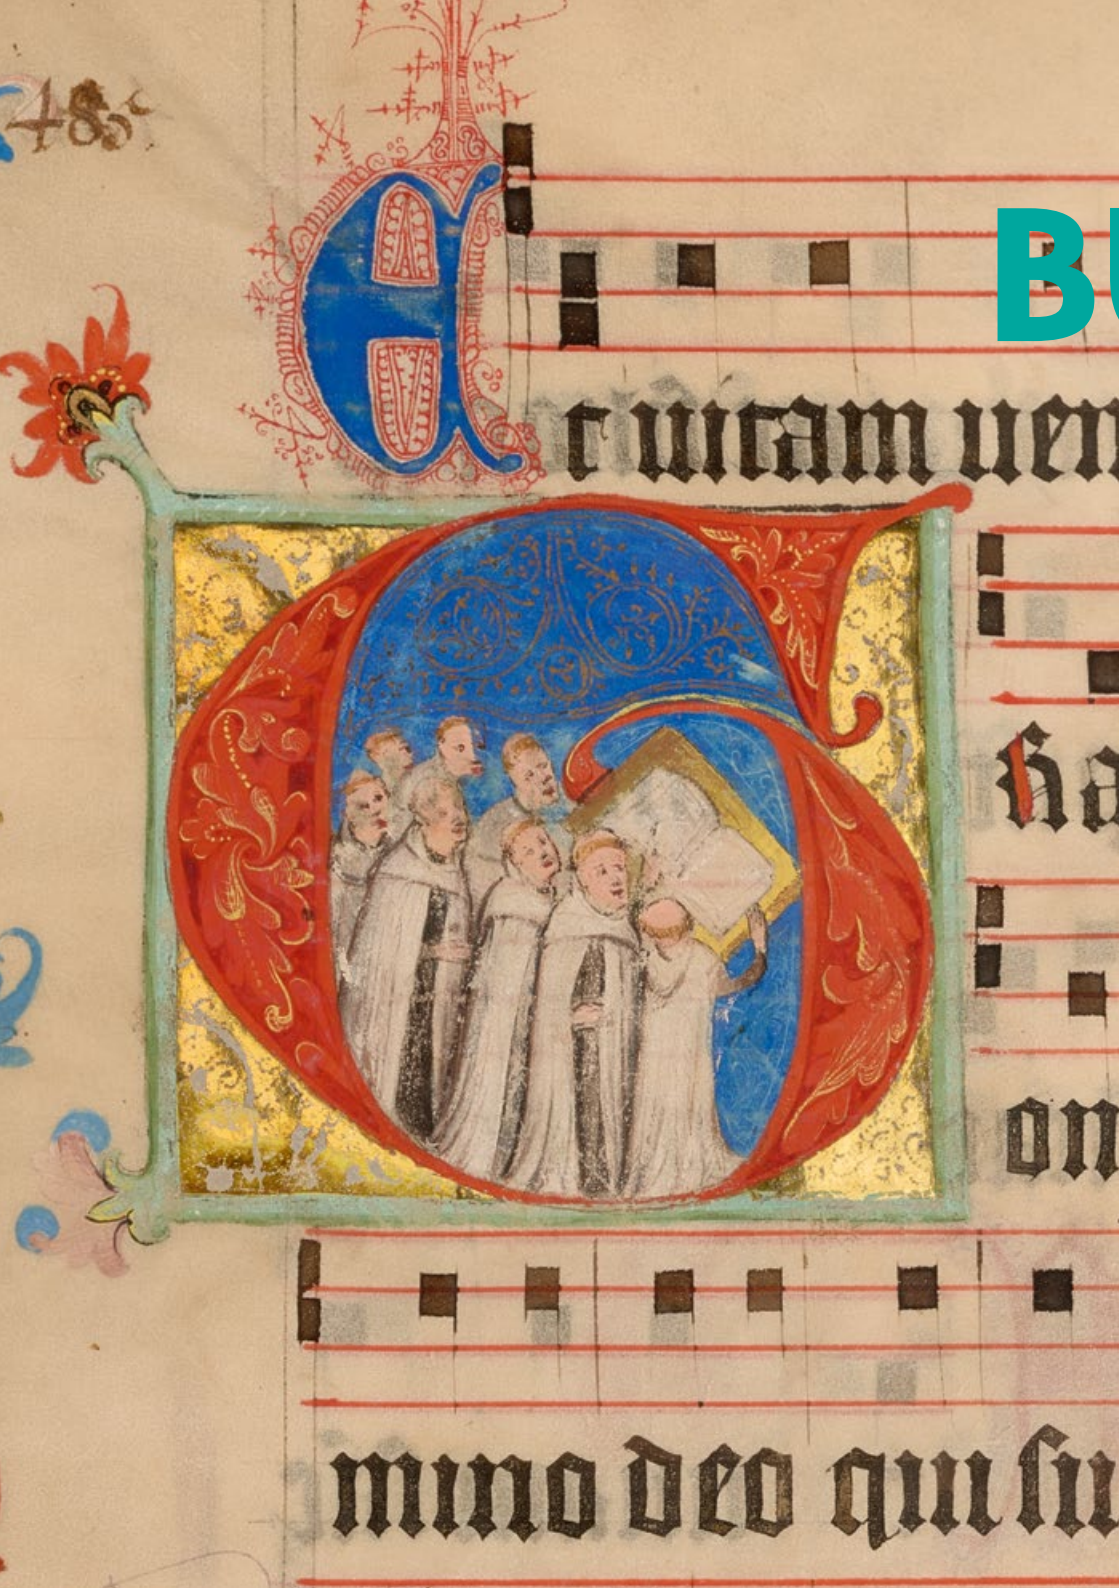 485
BU
Et uitam uen
Ha
on
mino deo qui su